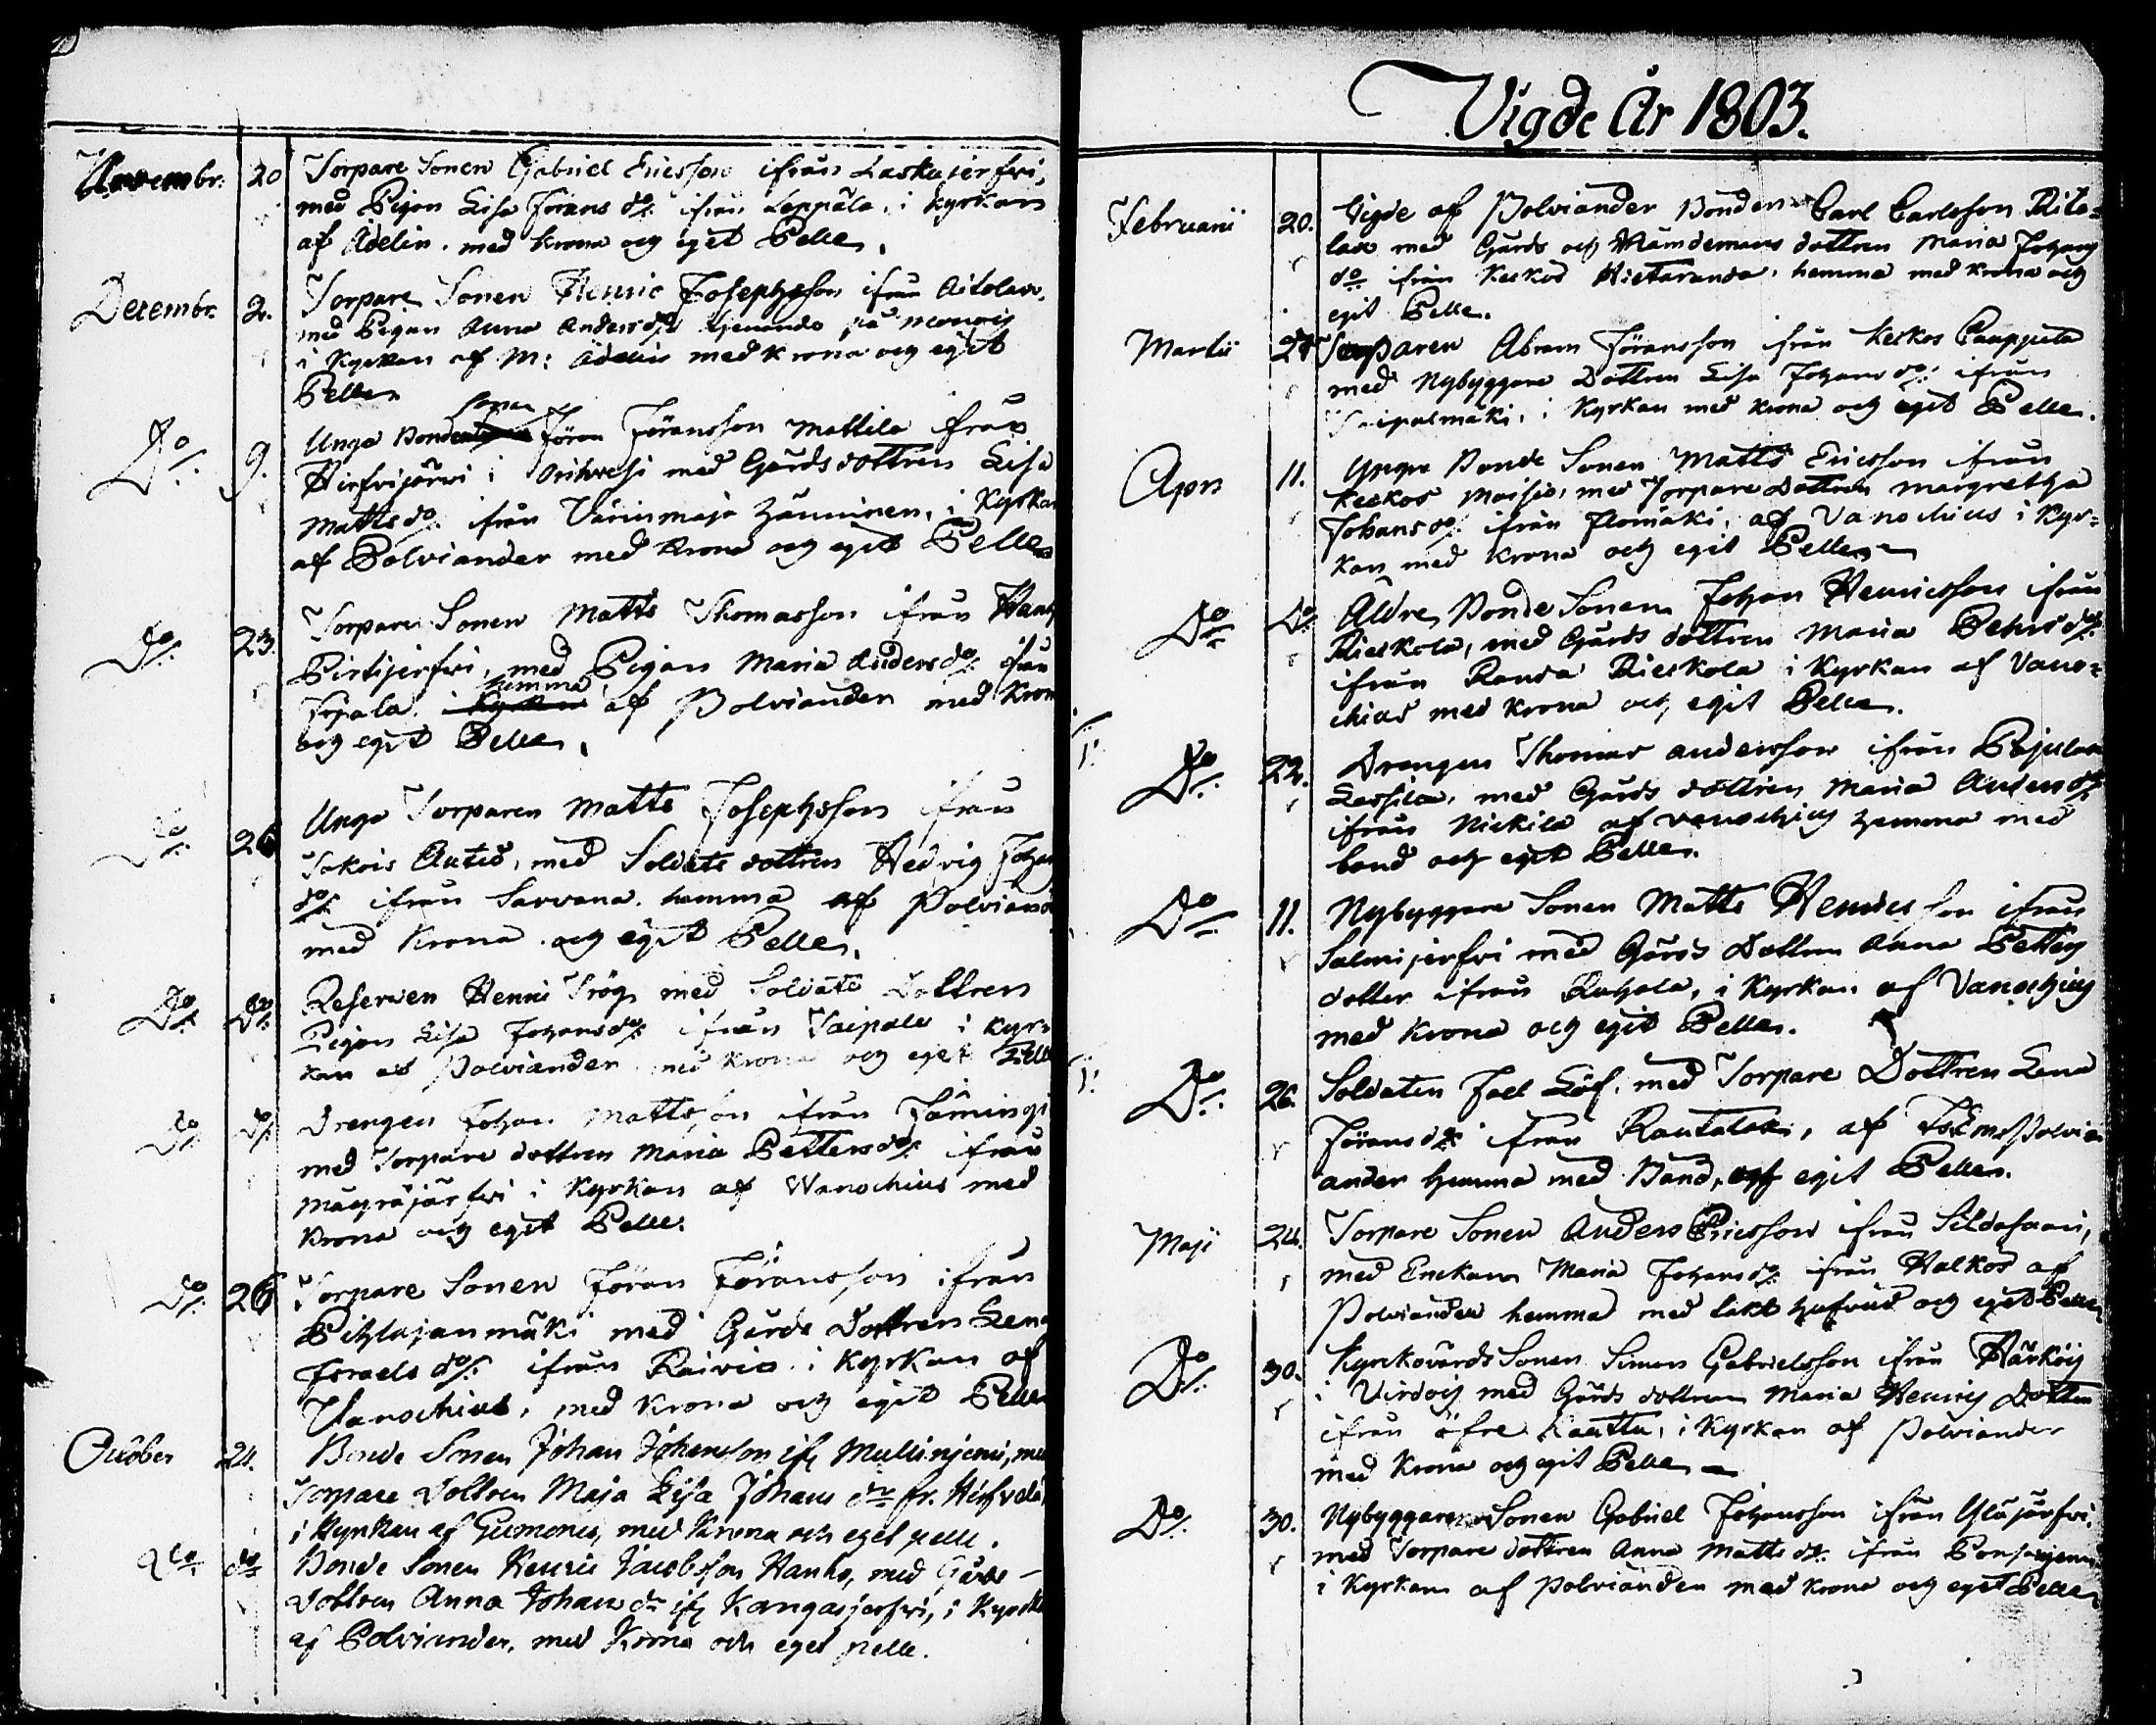 Novembr. 20 Torpare Sonen Gabriel Ericsson ifrån Laskujerfvi,
med Pigan Lisa Jörans do/: ifrån Leppälä, i kyrkan
af Adelin. med krona och eget Pelle.
Decembr. 2. Torpare Sonen Henric Josephsson ifrån Aitolax.
med Pigan Anna Anders do/: tjenande på
i Kyrkan af M: Adelin med Krona och eget
Pelle
sonen
Do/: 9. Unga Bonde Jöran Jöransson Mattila ifrån
Hirfvijärvi i Orihvesi med Gårds dottren Lisa
Matts do/: ifrån Värinmaja Hänninen, i Kyrkan
af Polviander med Krona och eget Pelle
Do/: 23. Torpare Sonen Matts Thomasson ifrån
Pirttijerfvi, med Pigan Maria Anders do/: ifrån
hemma
i Kyrkan af Polviander med Kron
och eget Pelle.
Do/: 26 Unga Torparen Matts Josephsson ifrån
Autio, med Soldats dottren Hedvig Johans
do/: ifrån Sarvana. hemma af Polviand
med Krona och eget Pelle.
Do/: Do/: Reserven Henric Trög med Soldats Dottren
Pigan Lisa Johans do/: ifrån Taipale i Kyr=
kan af Polviander med krona och eget Pelle
Do/: Do/: Drengen Johan Mattsson ifrån Jämingi
med Torpare dottren Maria Petters do/: ifrån
Mäyräjärfvi i Kyrkan af Wanochius med
Krona och eget Pelle.
Do/: 26 Torpare Sonen Jöran Jöransson ifrån
Pihlajanmäki med Gårds Dottren Lena
Israels do/: ifrån Raivio i Kyrkan af
Vanochius, med Krona och eget Pelle
October 24. Bonde Sonen Johan Johansson ifr Mullinjemi, med
Torpare Dottren Maja Lisa Johans dr fr.
i Kyrkan af Gumonus, med Krona och eget pelle.
do do Bonde Sonen Henric Jacobsson Hanho, med Gårds-
dottren Anna Johans dr ifr Kangasjerfvi, i Kyrck
af Polviander, med Krona och eget pelle.
Vigde År 1803.
Februarii 20. Vigde af Polviander Bonden Carl Carlsson Aito=
lax med Gårds och Nämdemans dottren Maria Johans
do ifrån Keskos Hietaranda, hemma med krona och
egit Pelle.
Martii 27 Torparen Abram Jöransson ifrån Keskos
med Nybyggare Dottren Lisa Johans do/: ifrån
i Kyrkan med krona och eget Pelle.
Apri 11. Yngre Bonde Sonen Matts Ericsson ifrån
Keskos Moisio, med Torpare Dottren Margretha
Johans do/: ifrån Flomäki, af Vanochius i Kyr=
kan med krona och egit Pelle
Do Do Äldre Bonde Sonen Johan Henricsson ifrån
Rieskola, med Gårds dottren Maria Pehrs do/:
ifrån Randa Rieskola i Kyrkan af Vano=
chius med krona och egit Pelle.
Do/: 22. Drengen Thomas Andersson ifrån Pajulax
Lassila, med Gårds dottren Maria Anders do/:
ifrån Nickila af Vanochius hemma med
band och eget Pelle.
Do 11. Nybyggare Sonen Matts Henricsson ifrån
Salmijerfvi med Gårds Dottren Anna Petters
dotter ifrån Ruhala, i Kyrkan af Vanochius
med Krona och egit Pelle.
Do/: 26. Soldaten Joel Löf, med Torpare Dottren Lena
Jörans do/: ifrån Rautalax, af Polvi
ander hemma med Band, och egit Pelle.
Maji 24. Torpare Sonen Anders Ericsson ifrån Sildasaari,
med Enckan Maria Johans do/: ifrån Halkos af
Polviander hemma med täkt hufvud och eget Pelle
Do/: 30. Kyrckovärds Sonen Simon Gabrielsson ifrån Härkois
i Virdois med Gårds dottren Maria Henrics Dotter
ifrån öfre Kauttu, i Kyrkan af Polviander
med Krona och egit Pelle
Do/: 30. Nybyggare Sonen Gabriel Johansson ifrån Yläjärfvi,
med Torpare dottren Anna Matts do/: ifrån
i Kyrkan af Polviander med krona och eget Pelle